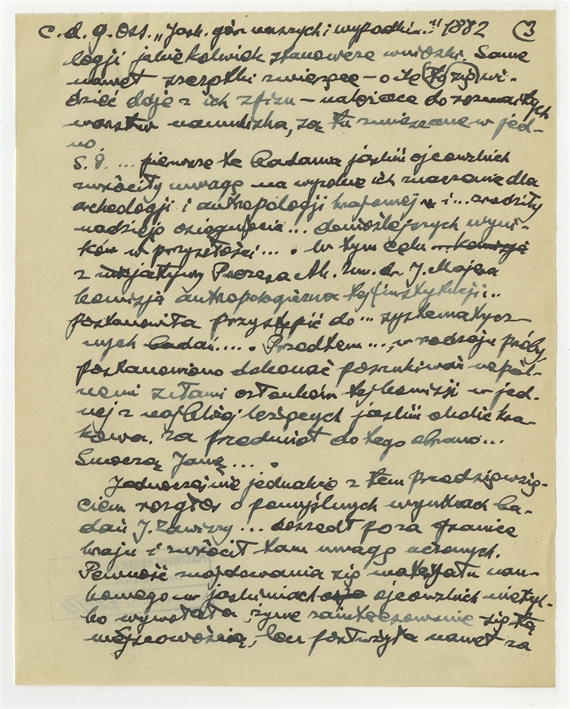 c. d. g. Oss. „Jask. gór naszych i wypadki..." 1882 (3
logji jakiekolwiek stanowcze wnioski. Same
nawet szczątki zwierzęce – o ile
dzieć daje z ich zfizu – należące do rozmaitych
warstw namuliska, są tu zmieszane w jed-
no.
S. 8. ... pierwsze te badania jaskiń ojcowskich
zwróciły uwagę na wysokie ich znaczenie dla
archeologji i antropologji krajowej i ... zrodziły
nadzieję osiągnięcia ... donioślejszych wyni-
ków w przyszłości ... . W tym celu
z inicjatywy Prezesa Ak. Um. dr. J. Majera
komisja antropologiczna tej instytucji ..
postanowiła przystąpić do ... systematycz-
nych badań .... Przedtem ..., w rodzaju próby,
postanowiono dokonać poszukiwań wspól-
nemi siłami członków tej komisji w jed-
nej z najbliżej leżących jaskiń okolic Kra-
kowa. Za przedmiot do tego obrano ...
Smoczą Jamę ... .
Jednocześnie jednakże z tem przedsięwzię-
ciem rozgłos o pomyślnych wynikach ba-
dań J. Zawiszy ... doszedł poza granice
kraju i zwrócił tam uwagę uczonych.
Pewność znajdowania się materjału nau-
kowego w jaskiniach ojcowskich nietyl-
ko wywołała żywe zainteresowanie się tą
miejscowością, lecz posłużyła nawet za